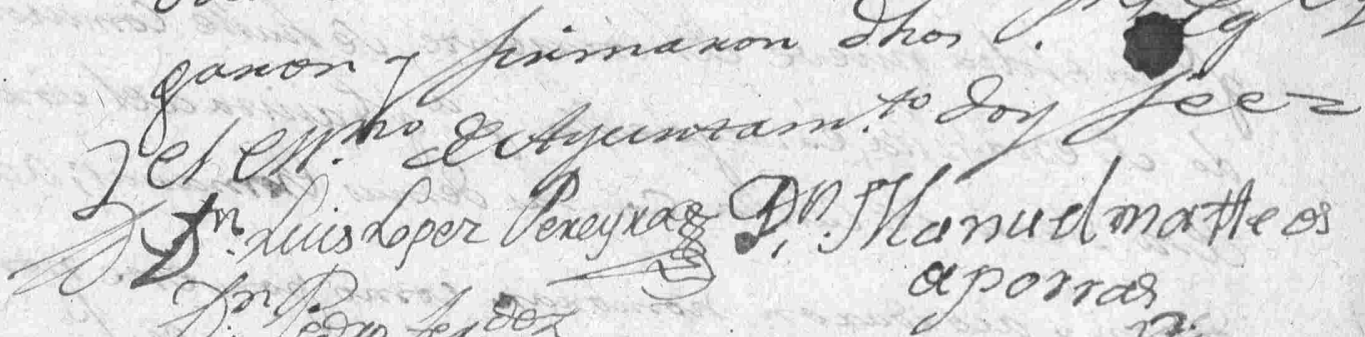 garon y firmaron dhos
el essno de Ayuntamto doy fee
Dn Luis Lopez Pereyra Dn Manuel matteos
aporras
Dn Pedro